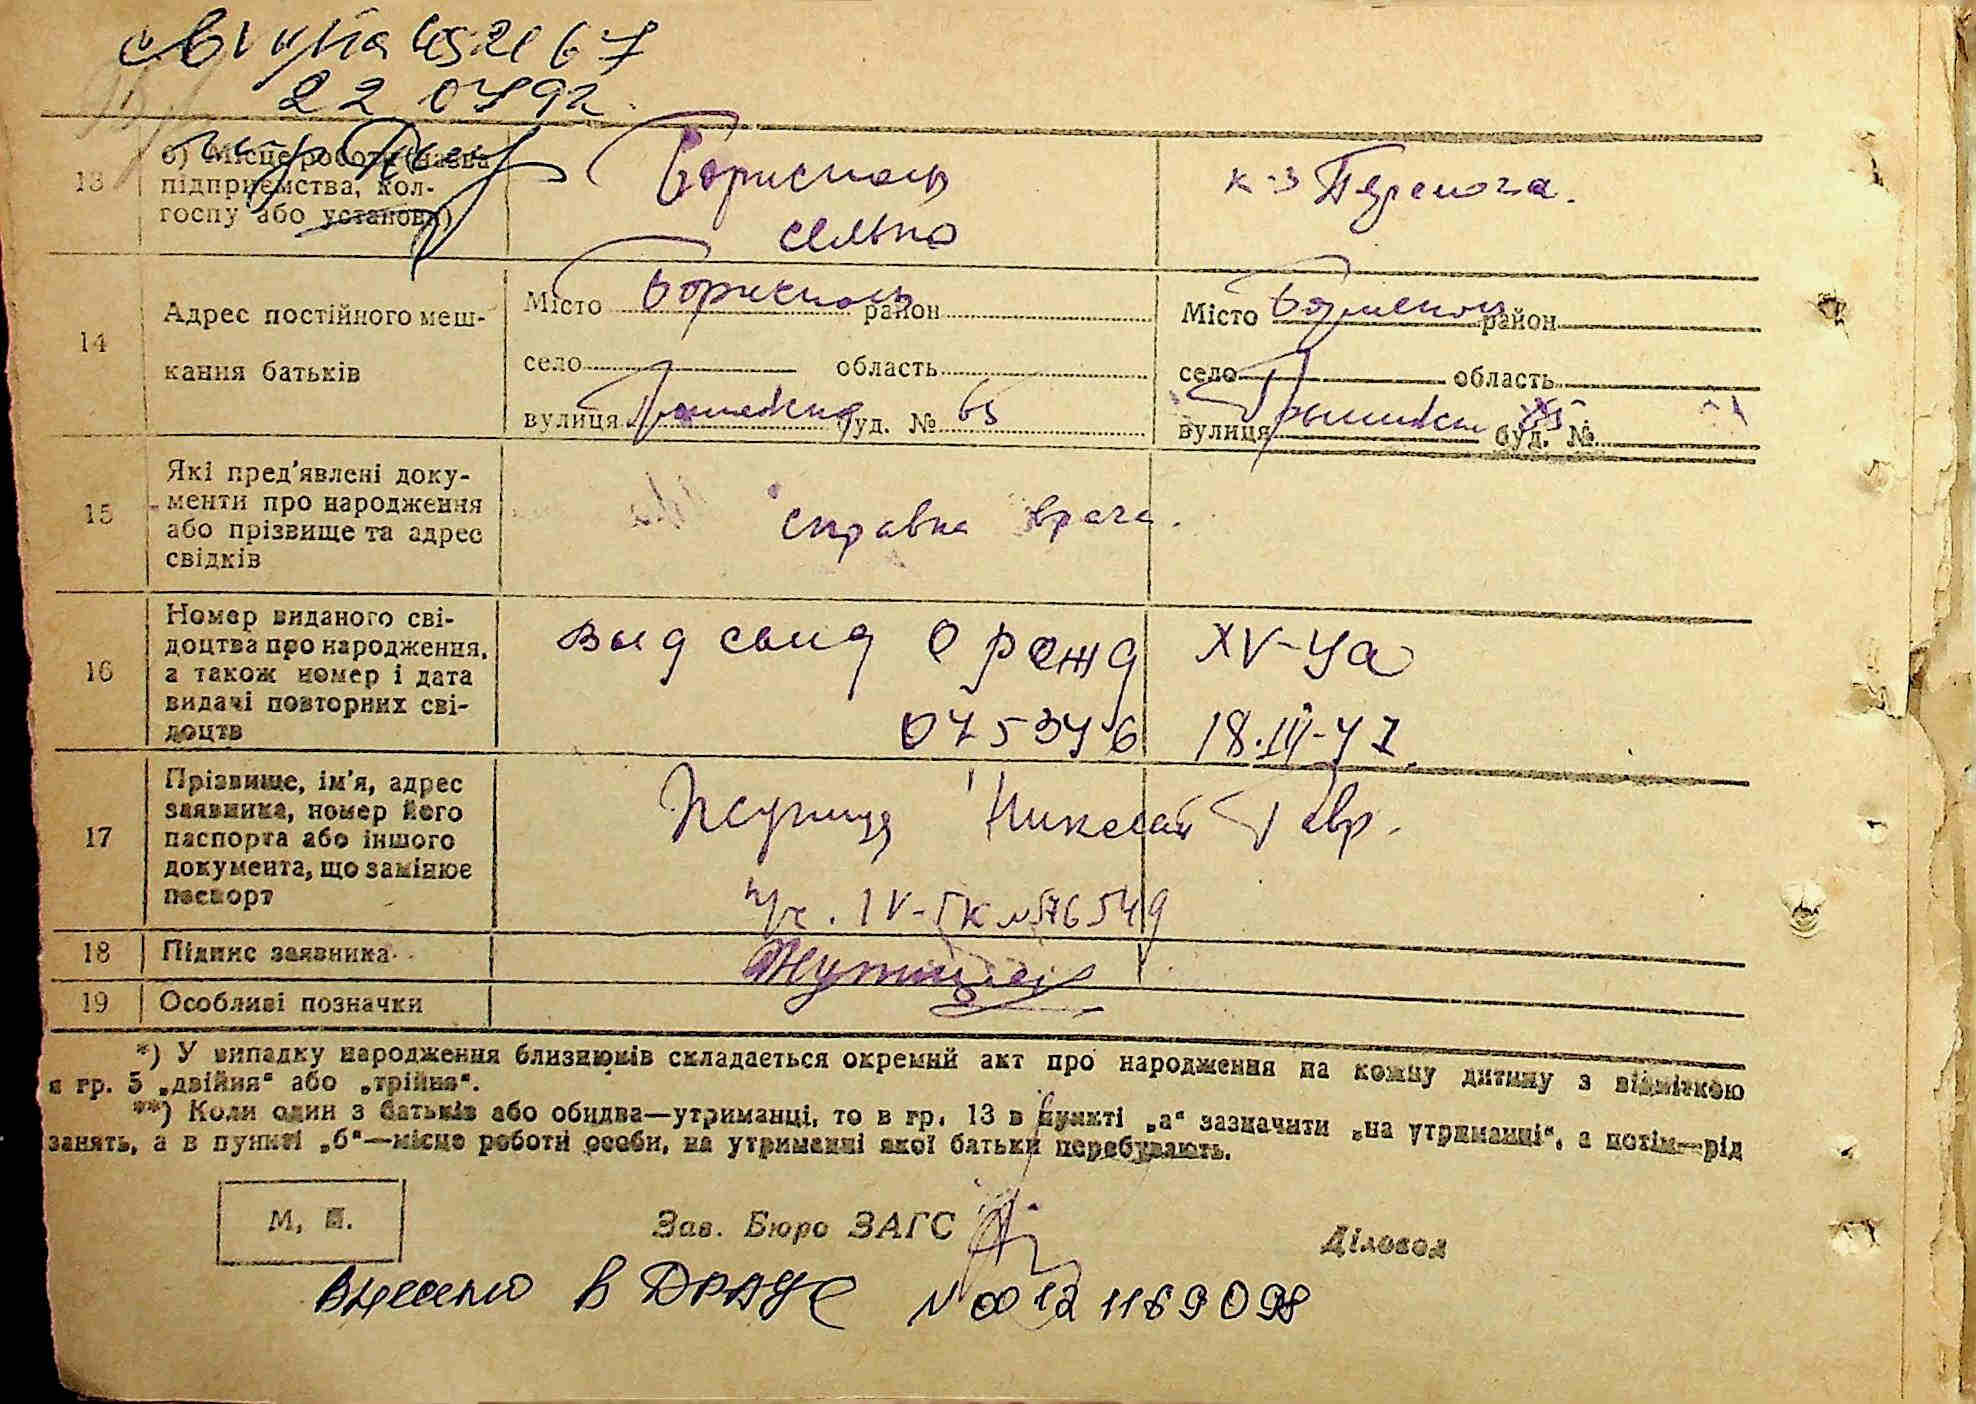 22 07 92
13
б) Місце роботи (назва
підприємства, кол-
госпу або установи)
Бориспол
сельпо
к-з Перемога.
14
Адрес постійного меш-
кання батьків
Місто Бориспол район
село область
вулиця буд. № 65
Місто Борисполь район
село область
вулиця буд. № 65
15
Які пред'явлені доку-
менти про народження
або прізвище та адрес
свідків
справка врача.
16
Номер виданого сві-
доцтва про народження,
а також номер і дата
видачі повторних сві-
доцтв
выд свид о рожд XV-УА
075346 18.III-47.
17
Прізвище, ім'я, адрес
заявника, номер його
паспорта або іншого
документа, що замінює
паспорт
Николай Гавр.
18
Підпис заявника
19
Особливі позначки
*) У випадку народження близнюків складається окремий акт про народження на кожну дитину з відміткою
в гр. 5 „двійня“ або „трійня“.
**) Коли один з батьків або обидва—утриманці, то в гр. 13 в пункті „а“ зазначити „на утриманні“, а потім—рід
занять, а в пункті „б“—місце роботи особи, на утриманні якої батьки перебувають.
М. П.
Зав. Бюро ЗАГС
Діловод
Внесено в ДРАЦС №00121169098